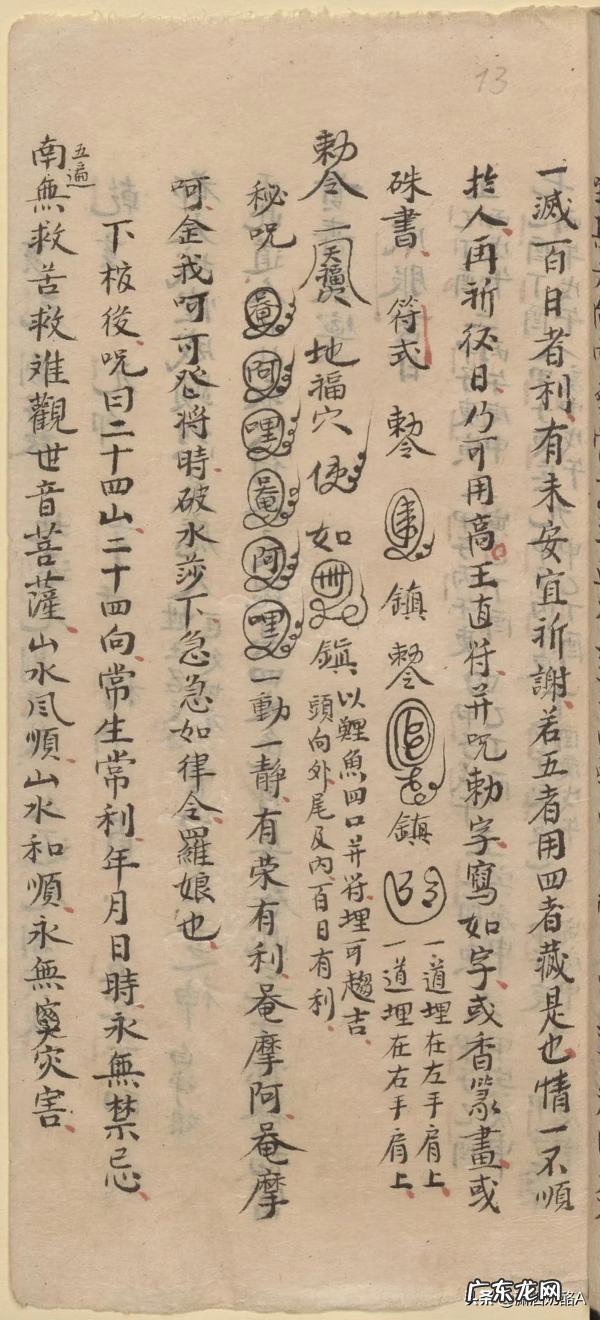 13
一滅百日者利有未安宜祈謝若五者用四者藏是也情一不順
於人再祈征日乃可用高王直符并咒勅字寫如字或香篆畫或
硃書 符式 勅令 鎮 勅令 鎮 一道埋在左手肩上
一道埋在右手肩上
勅令 地福穴 使 如 鎮 以鯉魚四口并符埋可趨吉
頭向外尾及內百日有利
秘咒 唵 阿 哩 菴 阿 哩 一動一靜有荣有利菴摩阿菴摩
呵金我呵可癹将時破水莎下急急如律令羅娘也
下棺後咒曰二十四山二十四向常生常利年月日時永無禁忌
五遍
南無救苦救难觀世音菩薩山水風順山水和順永無灾害
广东龙网